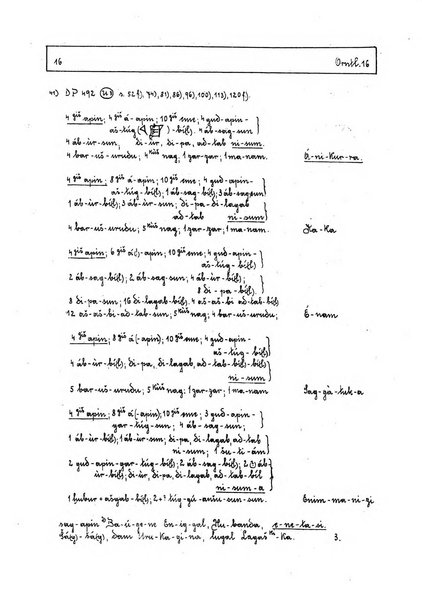 16 Orntl.16
41) DP 492 s. 52f), 74), 81), 86), 96), 100), 113), 120f).
4 giš apin; 8 giš á-apin; 10 giš eme; 4 gud-apin-
aš-túg-bíl). 4 áb-sag-sun
4 áb-ùr-sun, di-ùr, di-pa, ad-tab ni-sum.
4 bar-uš-urudu; 4 Kuš nag; 1 zar-zar; 1 ma-nam. É-ni-kur-ra.
4 giš apin; 8 giš á-apin; 10 giš eme; 4 gud-apin-
aš-túg-bíl); 1 áb-sag-bíl); 3 áb-sag sun
1 áb-ùr-bíl); 3 áb-ùr-sun; di-pa-di-lagab
ad-tab ni-sum
4 bar-uš-urudu; 5 Kuš nag; 1 zar-zar; 1 ma-nam. Ka-ka
4 giš apin; 6 giš á(!)-apin; 10 giš eme; 4 gud-apin-
aš-túg-bíl)
2 áb-sag-bíl); 2 áb-sag-sun; 4 áb-ùr-bíl);
8 di-pa-bíl).
8 di-pa-sun; 16 di-lagab-bíl). 4 aš-aš-bi ad-tab-bíl)
12 aš-aš-bi-ad-tab-sun; 5 Kuš nag; 4 bar-uš-urudu; É-nam
4 giš apin; 8 giš á(-apin); 10 giš eme; 4 gud-apin-
aš-túg-bíl)
4 áb-ùr-bíl); di-pa, di-lagab, ad-tab-bíl)
ni-sum
5 bar-uš-urudu; 5 Kuš nag; 1 zar-zar; 1 ma-nam; Sag-gà-tuk-a
4 giš apin; 8 giš á(-apin); 10 giš eme; 3 gud-apin-
gar-túg-sun; 4 áb-sag-sun;
1 áb-ùr-bíl); 1 áb-ùr-sum; di-pa, di-lagab, ad-tab
ni-sum; 1 su-ti-ám
2 gud-apin-gar-túg-bíl); 2 áb-sag-bíl); 2 áb
ùr-bíl); di-ùr, di-pa, di-lagab, ad-tab-bíl
ni-sum-a
1 hubur + ašgab-bíl); 2+? túg-gú-anšu-sun-sun. Enim-ma-ni-zi
sag-apin Ba-ú-ge-ne En-ig-gal, Nu-banda, e-ne-ta-si.
Šá(g)-šá(g), dam Uru-Ka-gi-na, lugal Lagaš Ki-Ka. 3.